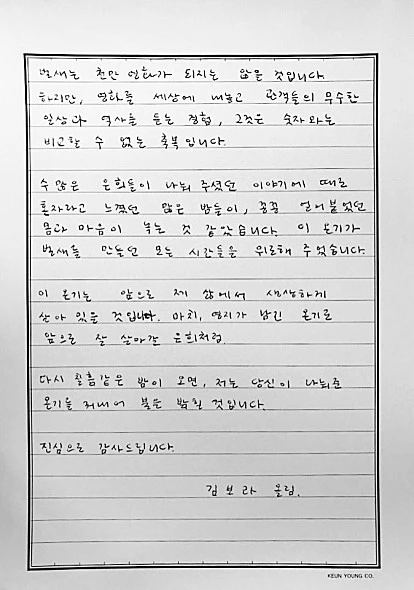 벌새는 천만 영화가 되지는 않을 것입니다.
하지만, 영화를 세상에 내놓고 관객들의 무수한
일상과 역사를 듣는 경험, 그것은 숫자와는
비교할 수 없는 축복입니다.
수많은 은희들이 나눠 주셨던 이야기에 때로
혼자라고 느꼈던 많은 밤들이, 꽁꽁 얼어붙었던
몸과 마음이 녹는 것 같았습니다. 이 온기가
벌새를 만들던 모든 시간들을 위로해 주었습니다.
이 온기는 앞으로 제 삶에서 생생하게
살아 있을 것입니다. 마치, 영지가 남긴 온기로
앞으로 잘 살아갈 은희처럼.
다시 칠흑같은 밤이 오면, 저는 당신이 나눠준
온기를 꺼내어 불을 밝힐 것입니다.
진심으로 감사드립니다.
김보라 올림.
KEUN YOUNG CO.